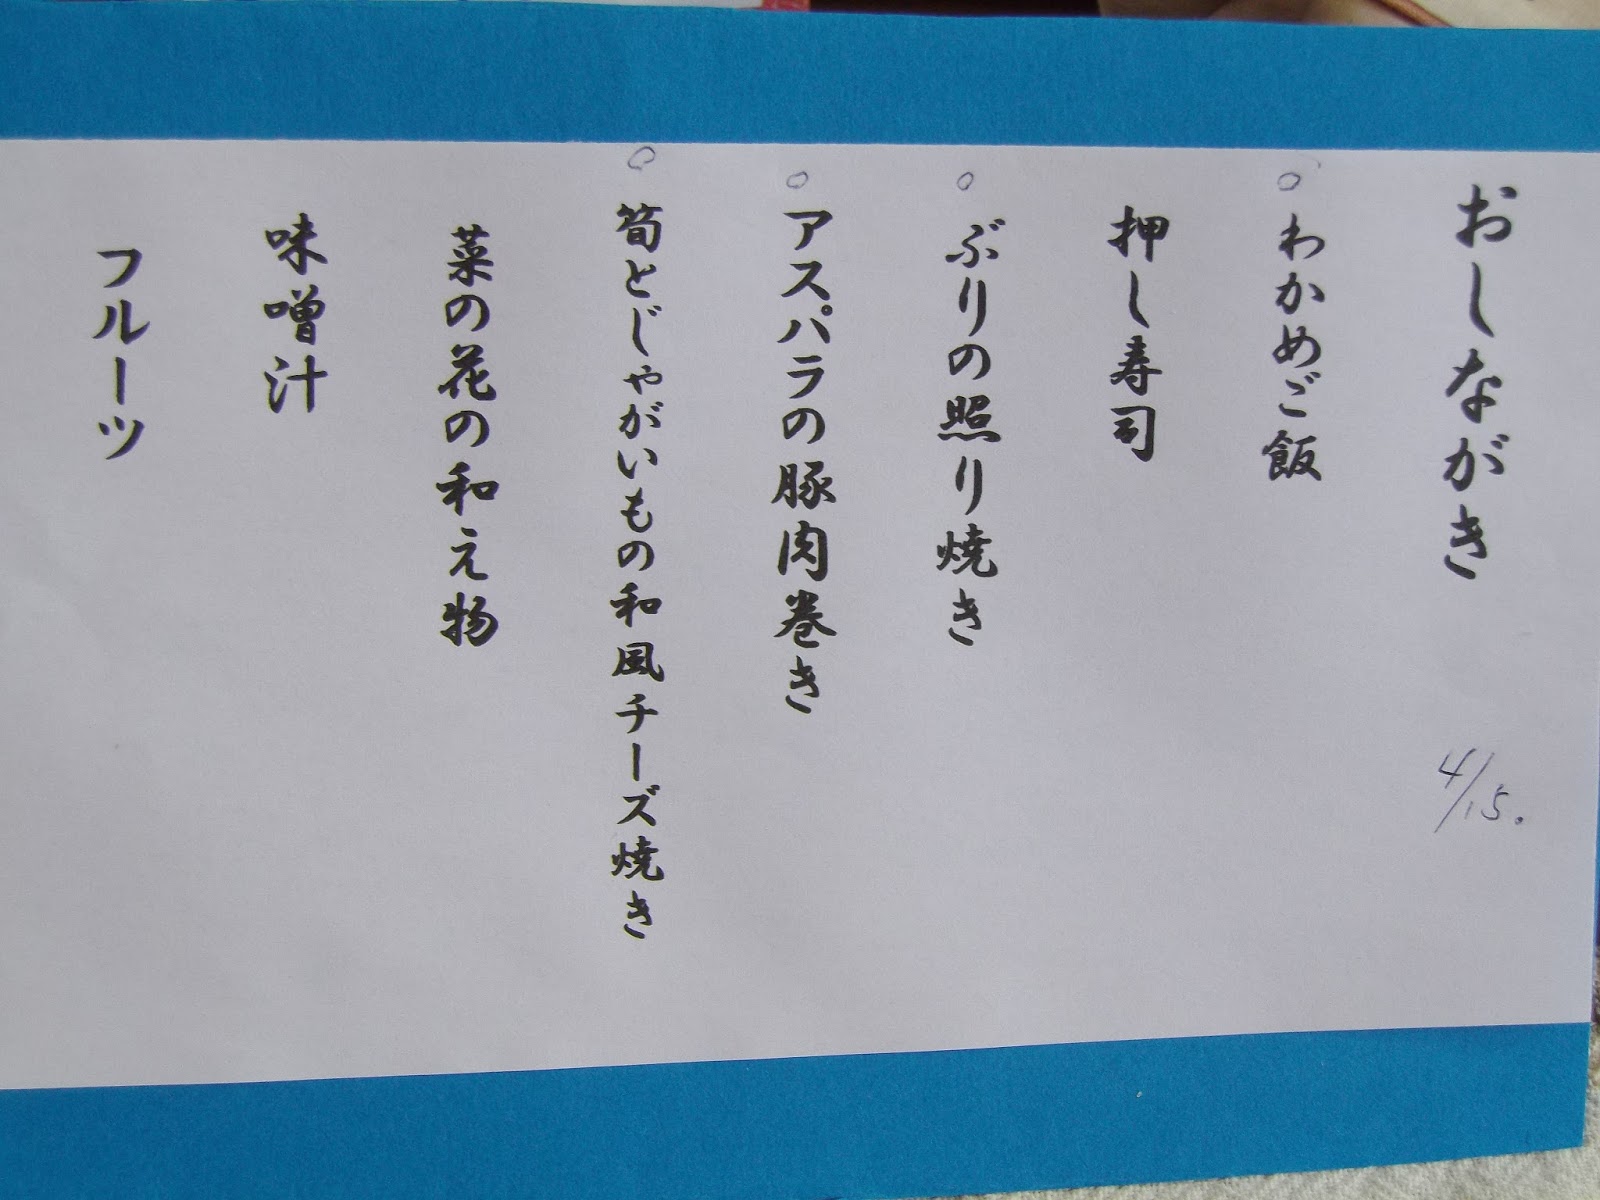 おしながき
4/15.
○わかめご飯
押し寿司
○ぶりの照り焼き
○アスパラの豚肉巻き
○筍とじゃがいもの和風チーズ焼き
菜の花の和え物
味噌汁
フルーツ